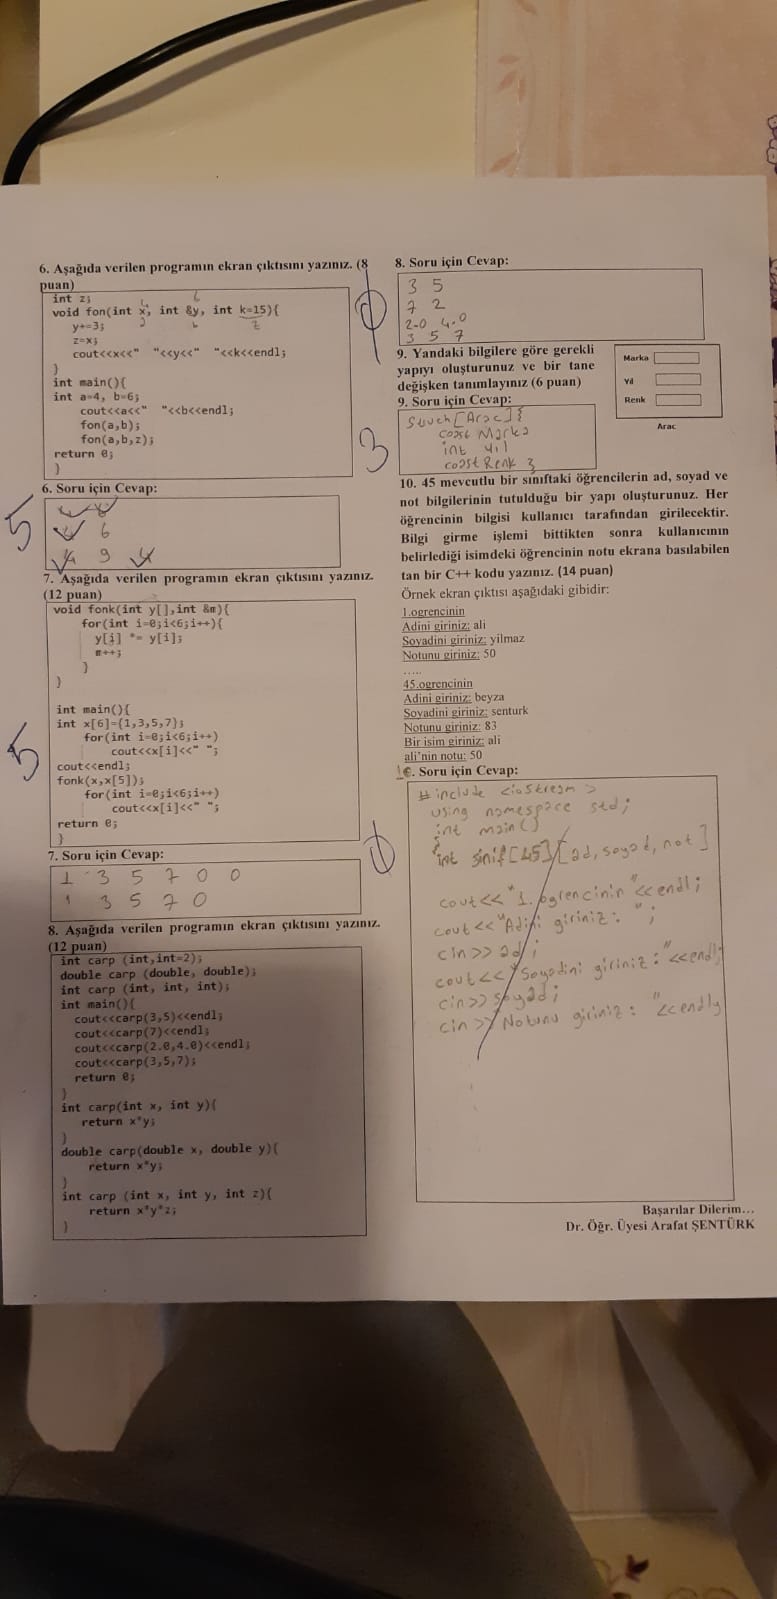 6. Aşağıda verilen programın ekran çıktısını yazınız. (8
puan)
int z;
void fon(int x, int &y, int k=15){
y+=3;
z=x;
cout<<x<<" "<<y<<" "<<k<<endl;
}
int main(){
int a=4, b=6;
cout<<a<<" "<<b<<endl;
fon(a,b);
fon(a,b,z);
return 0;
}
6. Soru için Cevap:
6
9
5
7. Aşağıda verilen programın ekran çıktısını yazınız.
(12 puan)
void fonk(int y[],int &m){
for(int i=0;i<6;i++){
y[i] *= y[i];
m++;
}
}
int main(){
int x[6]={1,3,5,7};
for(int i=0;i<6;i++)
cout<<x[i]<<" ";
cout<<endl;
fonk(x,x[5]);
for(int i=0;i<6;i++)
cout<<x[i]<<" ";
return 0;
}
5
7. Soru için Cevap:
1 3 5 7 0 0
1 3 5 7 0
8. Aşağıda verilen programın ekran çıktısını yazınız.
(12 puan)
int carp (int,int=2);
double carp (double, double);
int carp (int, int, int);
int main(){
cout<<carp(3,5)<<endl;
cout<<carp(7)<<endl;
cout<<carp(2.0,4.0)<<endl;
cout<<carp(3,5,7);
return 0;
}
int carp(int x, int y){
return x*y;
}
double carp(double x, double y){
return x*y;
}
int carp (int x, int y, int z){
return x*y*z;
}
8. Soru için Cevap:
3 5
7 2
2.0 4.0
3 5 7
9. Yandaki bilgilere göre gerekli
yapıyı oluşturunuz ve bir tane
değişken tanımlayınız (6 puan)
Marka
Yıl
Renk
Arac
9. Soru için Cevap:
3
[Arac] {
Marka
int yıl
Renk }
10. 45 mevcutlu bir sınıftaki öğrencilerin ad, soyad ve
not bilgilerinin tutulduğu bir yapı oluşturunuz. Her
öğrencinin bilgisi kullanıcı tarafından girilecektir.
Bilgi girme işlemi bittikten sonra kullanıcının
belirlediği isimdeki öğrencinin notu ekrana basılabilen
tan bir C++ kodu yazınız. (14 puan)
Örnek ekran çıktısı aşağıdaki gibidir:
1.ogrencinin
Adini giriniz: ali
Soyadini giriniz: yilmaz
Notunu giriniz: 50
.....
45.ogrencinin
Adini giriniz: beyza
Soyadini giriniz: senturk
Notunu giriniz: 83
Bir isim giriniz: ali
ali'nin notu: 50
10. Soru için Cevap:
#include <iostream>
using namespace std;
int main()
{
int sinif[45][ad, soyad, not]
cout<<"1. ogrencinin"<<endl;
cout<<"Adini giriniz: ";
cin>> ad;
cout<<"Soyadini giriniz:"<<endl;
cin>>soyad;
cin>>"Notunu giriniz: "<<endl;
Başarılar Dilerim...
Dr. Öğr. Üyesi Arafat ŞENTÜRK